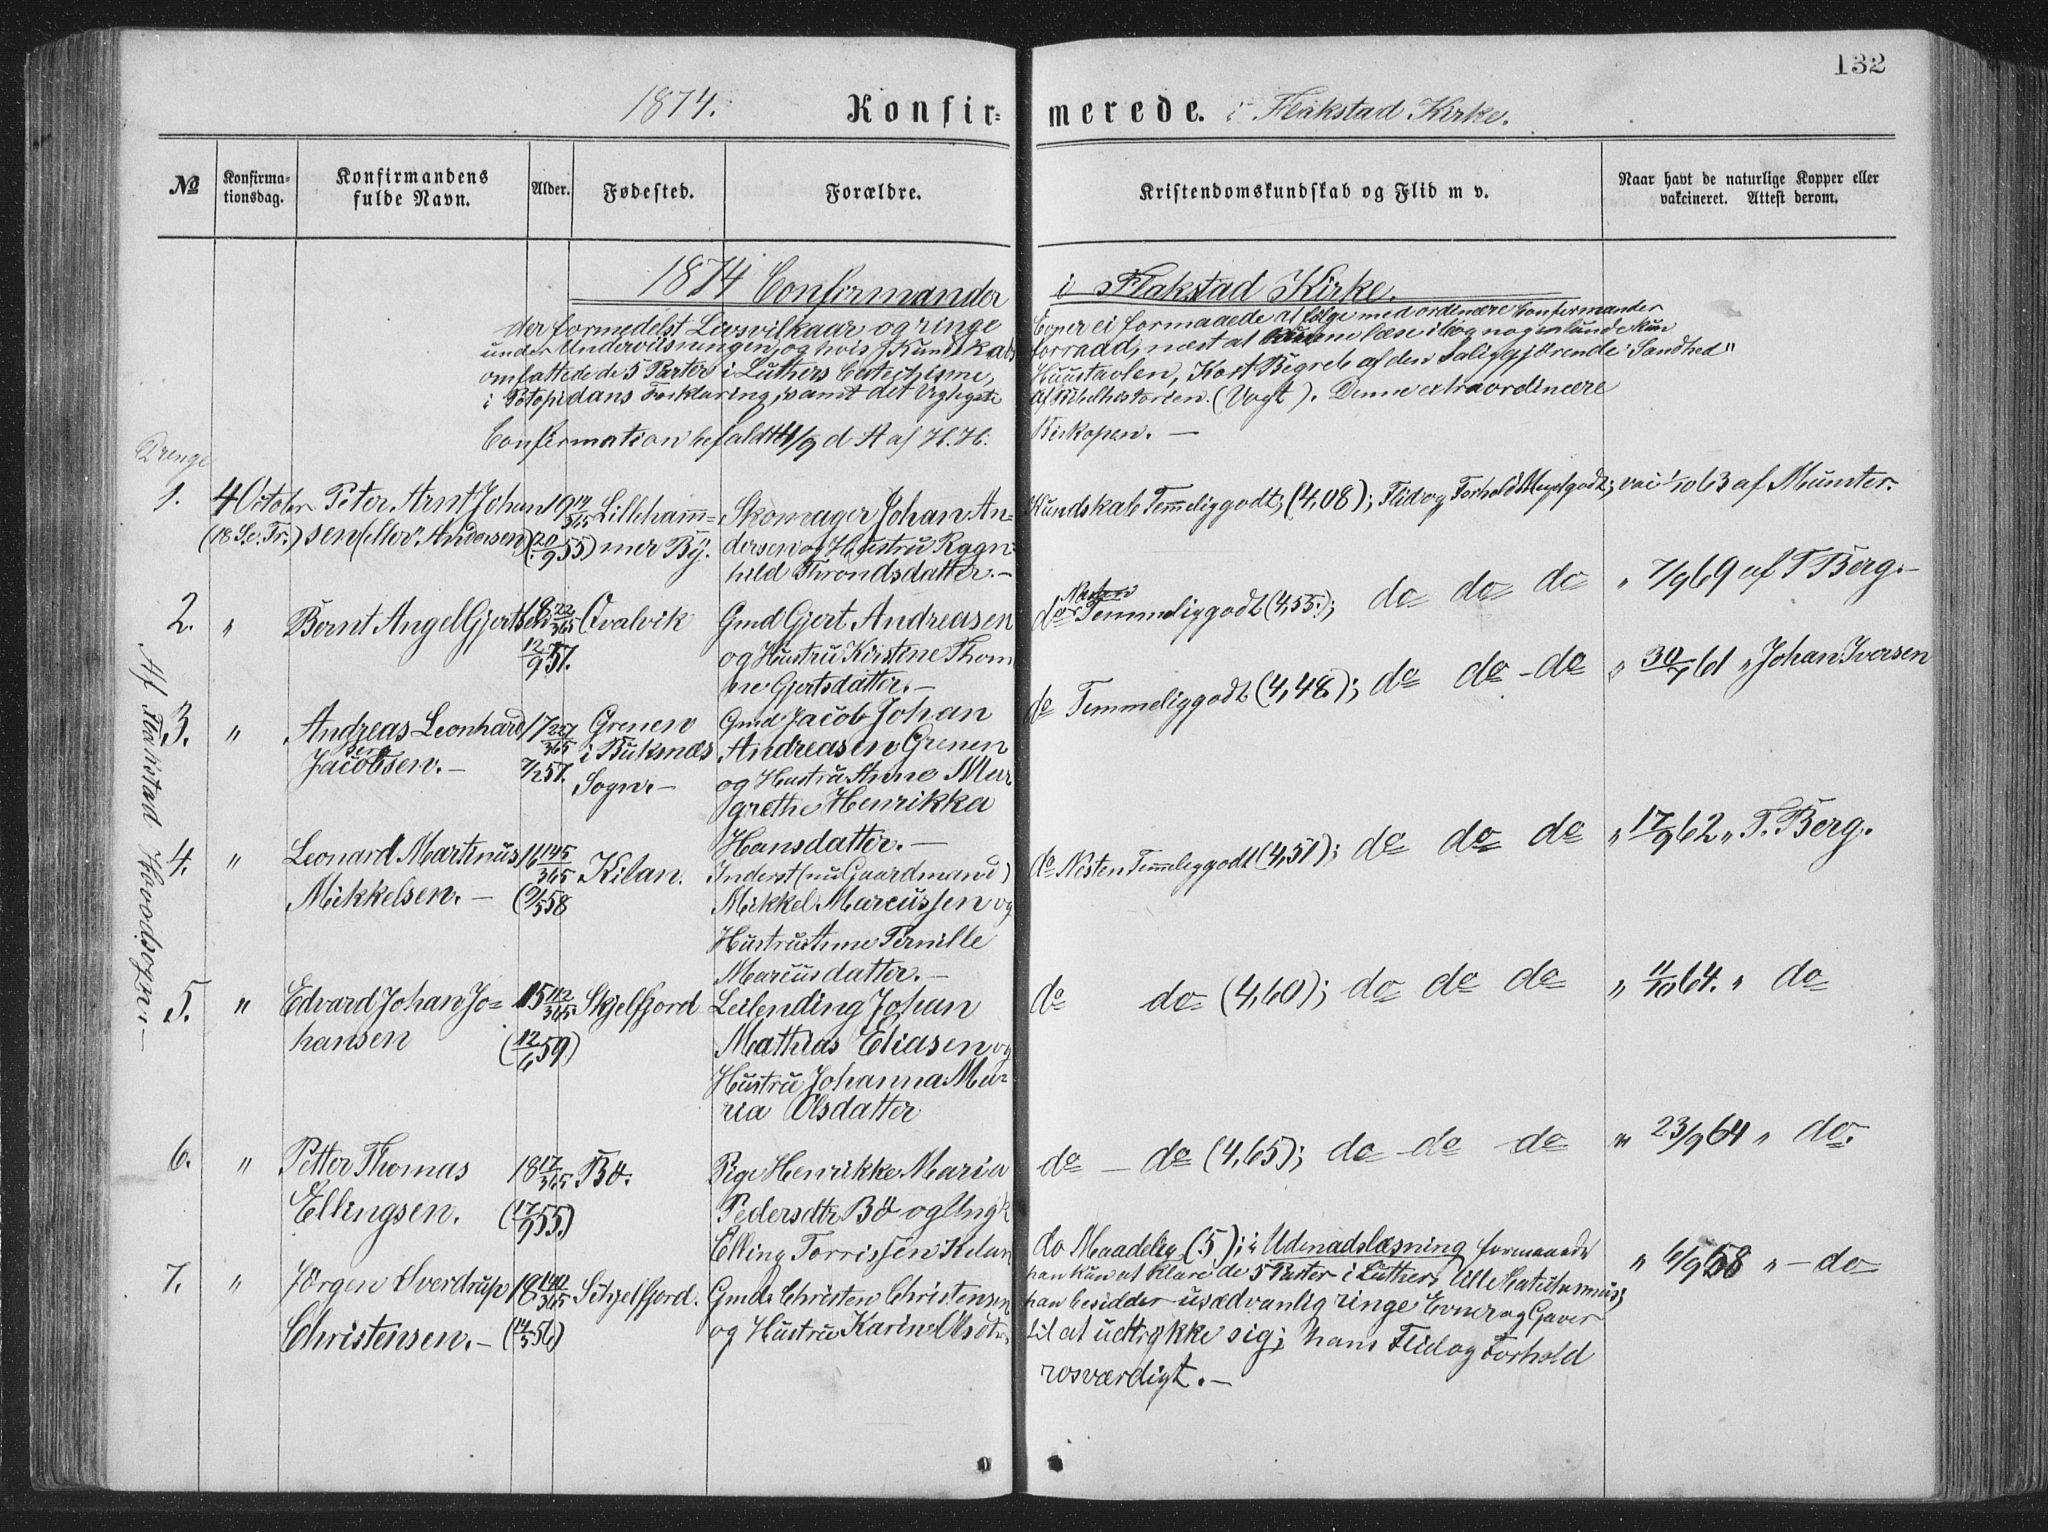 132
1874. Konfirmerede. i Flakstad Kirke.
№ Konfirmationsdag. Konfirmandens fulde Navn. Alder. Fødested. Forældre. Kristendomskundskab og Flid m v. Naar havt de naturlige Kopper eller vakcineret. Attest derom.
1874 Confirmander i Flakstad Kirke.
der formedelst Livsvilkaar og ringe Evner ei formaaede at følge med ordinære Confirmander
under Underviisningen, og hvis Kundskabs forraad, næst at kunne læse i bog nogenlunde kun
omfattede de 5 Parter i Luthers Catechisme, Huustavlen, Kort Begreb af den saliggjörende Sandhed"
i Potopidans Forklaring, samt det Vigtigste af Bibelhistorien. (Vogt). Denne extraordinære
Confirmation befaldt 11/9 d A af H. H: Biskopen. —
Drenge
Af Flakstad Hovedsogn. —
1. 4 October Peter Arnt Johan 19 14/365 Lilleham- Skomager Johan An-
(18 S.e.Tr.) sen (eller Andersen) (20/9 55) mer By. dersen og Hustru Ragn-
hild Throndsdatter. —
Kundskab Temmeliggodt; (4,08); Flid og Forhold Megetgodt; vac 1/10 63 af Münter.
2. " Bernt Angel Gjertsen 18 22/365 Qvalvik Gmd Gjert Andreasen
12/9 57. og Hustru Kirstine Thom
ine Gjertsdatter. —
do Næsten Temmeliggodt (4,55.); do do do " 7/9 69 af T Berg. —
3. " Andreas Leonhard 17 227/365 Grenen Gmd Jacob Johan
Jacobsen. — 7/2 57. i Buksnæs Andreasen Grenen
Sogn. — og Hustru Anne Mar
grethe Henrikka
Hansdatter. —
do Temmeliggodt (4,48); do do - do " 30/7 61 " Johan Iversen
4. " Leonard Martinus 16 145/365 Kilan. Inderst (nu Gaardmand)
Mikkelsen. — (9/5 58 Mikkel Marcussen og
Hustru Anne Pernille
Marcusdatter. —
do Nesten Temmeliggodt (4,51); do do do " 17/9 62 " T. Berg.
5. " Edvard Johan Jo- 15 112/365 Skjelfjord Leilending Johan
hansen (12/6 59) Mathias Eliasen og
Hustru Johanna Ma-
ria Olsdatter
do do (4,60); do do do " 11/10 64. " do
6. " Petter Thomas 18 17/365 Bö. Pige Henrikke Maria
Ellingsen. (17/9 55.) Pedersdtr Bö og Ungk
Elling Torrissen Kilan
do — do (4,65); do do do " 23/9 64 " do.
7. " Jörgen Sverdrup 18 140/365 Skjelfjord. Gmd Christen Christensen
Christensen. — (14/5 56) og Hustru Karine Olsdtr.
do Maadelig (5); i Udenadslæsning formaaede
han kun at klare de 5 Parter i Luthers lille Katechismus;
han besidder usædvanlig ringe Evner og Gaver
til at udtrykke sig; hans Flid og Forhold
rosværdigt. —
" 6/9 68 " — do